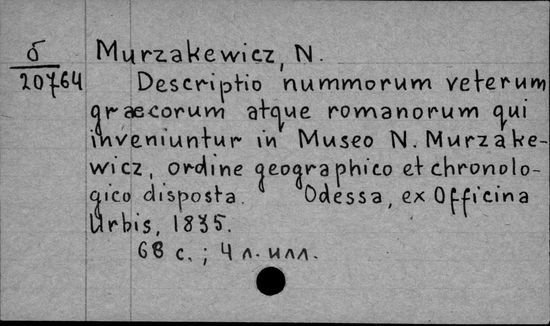 б
20764
Murzakewicz, N.
Descriptio nummorum veterum
graecorum atque romanorum qui
inveniuntur in Museo N. Murzake-
wicz, ordine geographico et chronolo-
gico disposta. Odessa, ex Officina
Urbis, 1835.
68 с.; 4 л. илл.